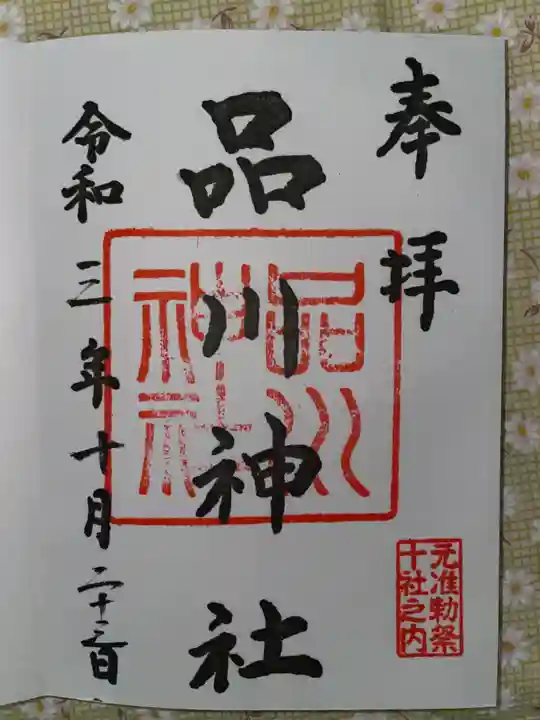 奉拝
品川神社
品川神社
元准勅祭
十社之内
令和三年十月二十三日